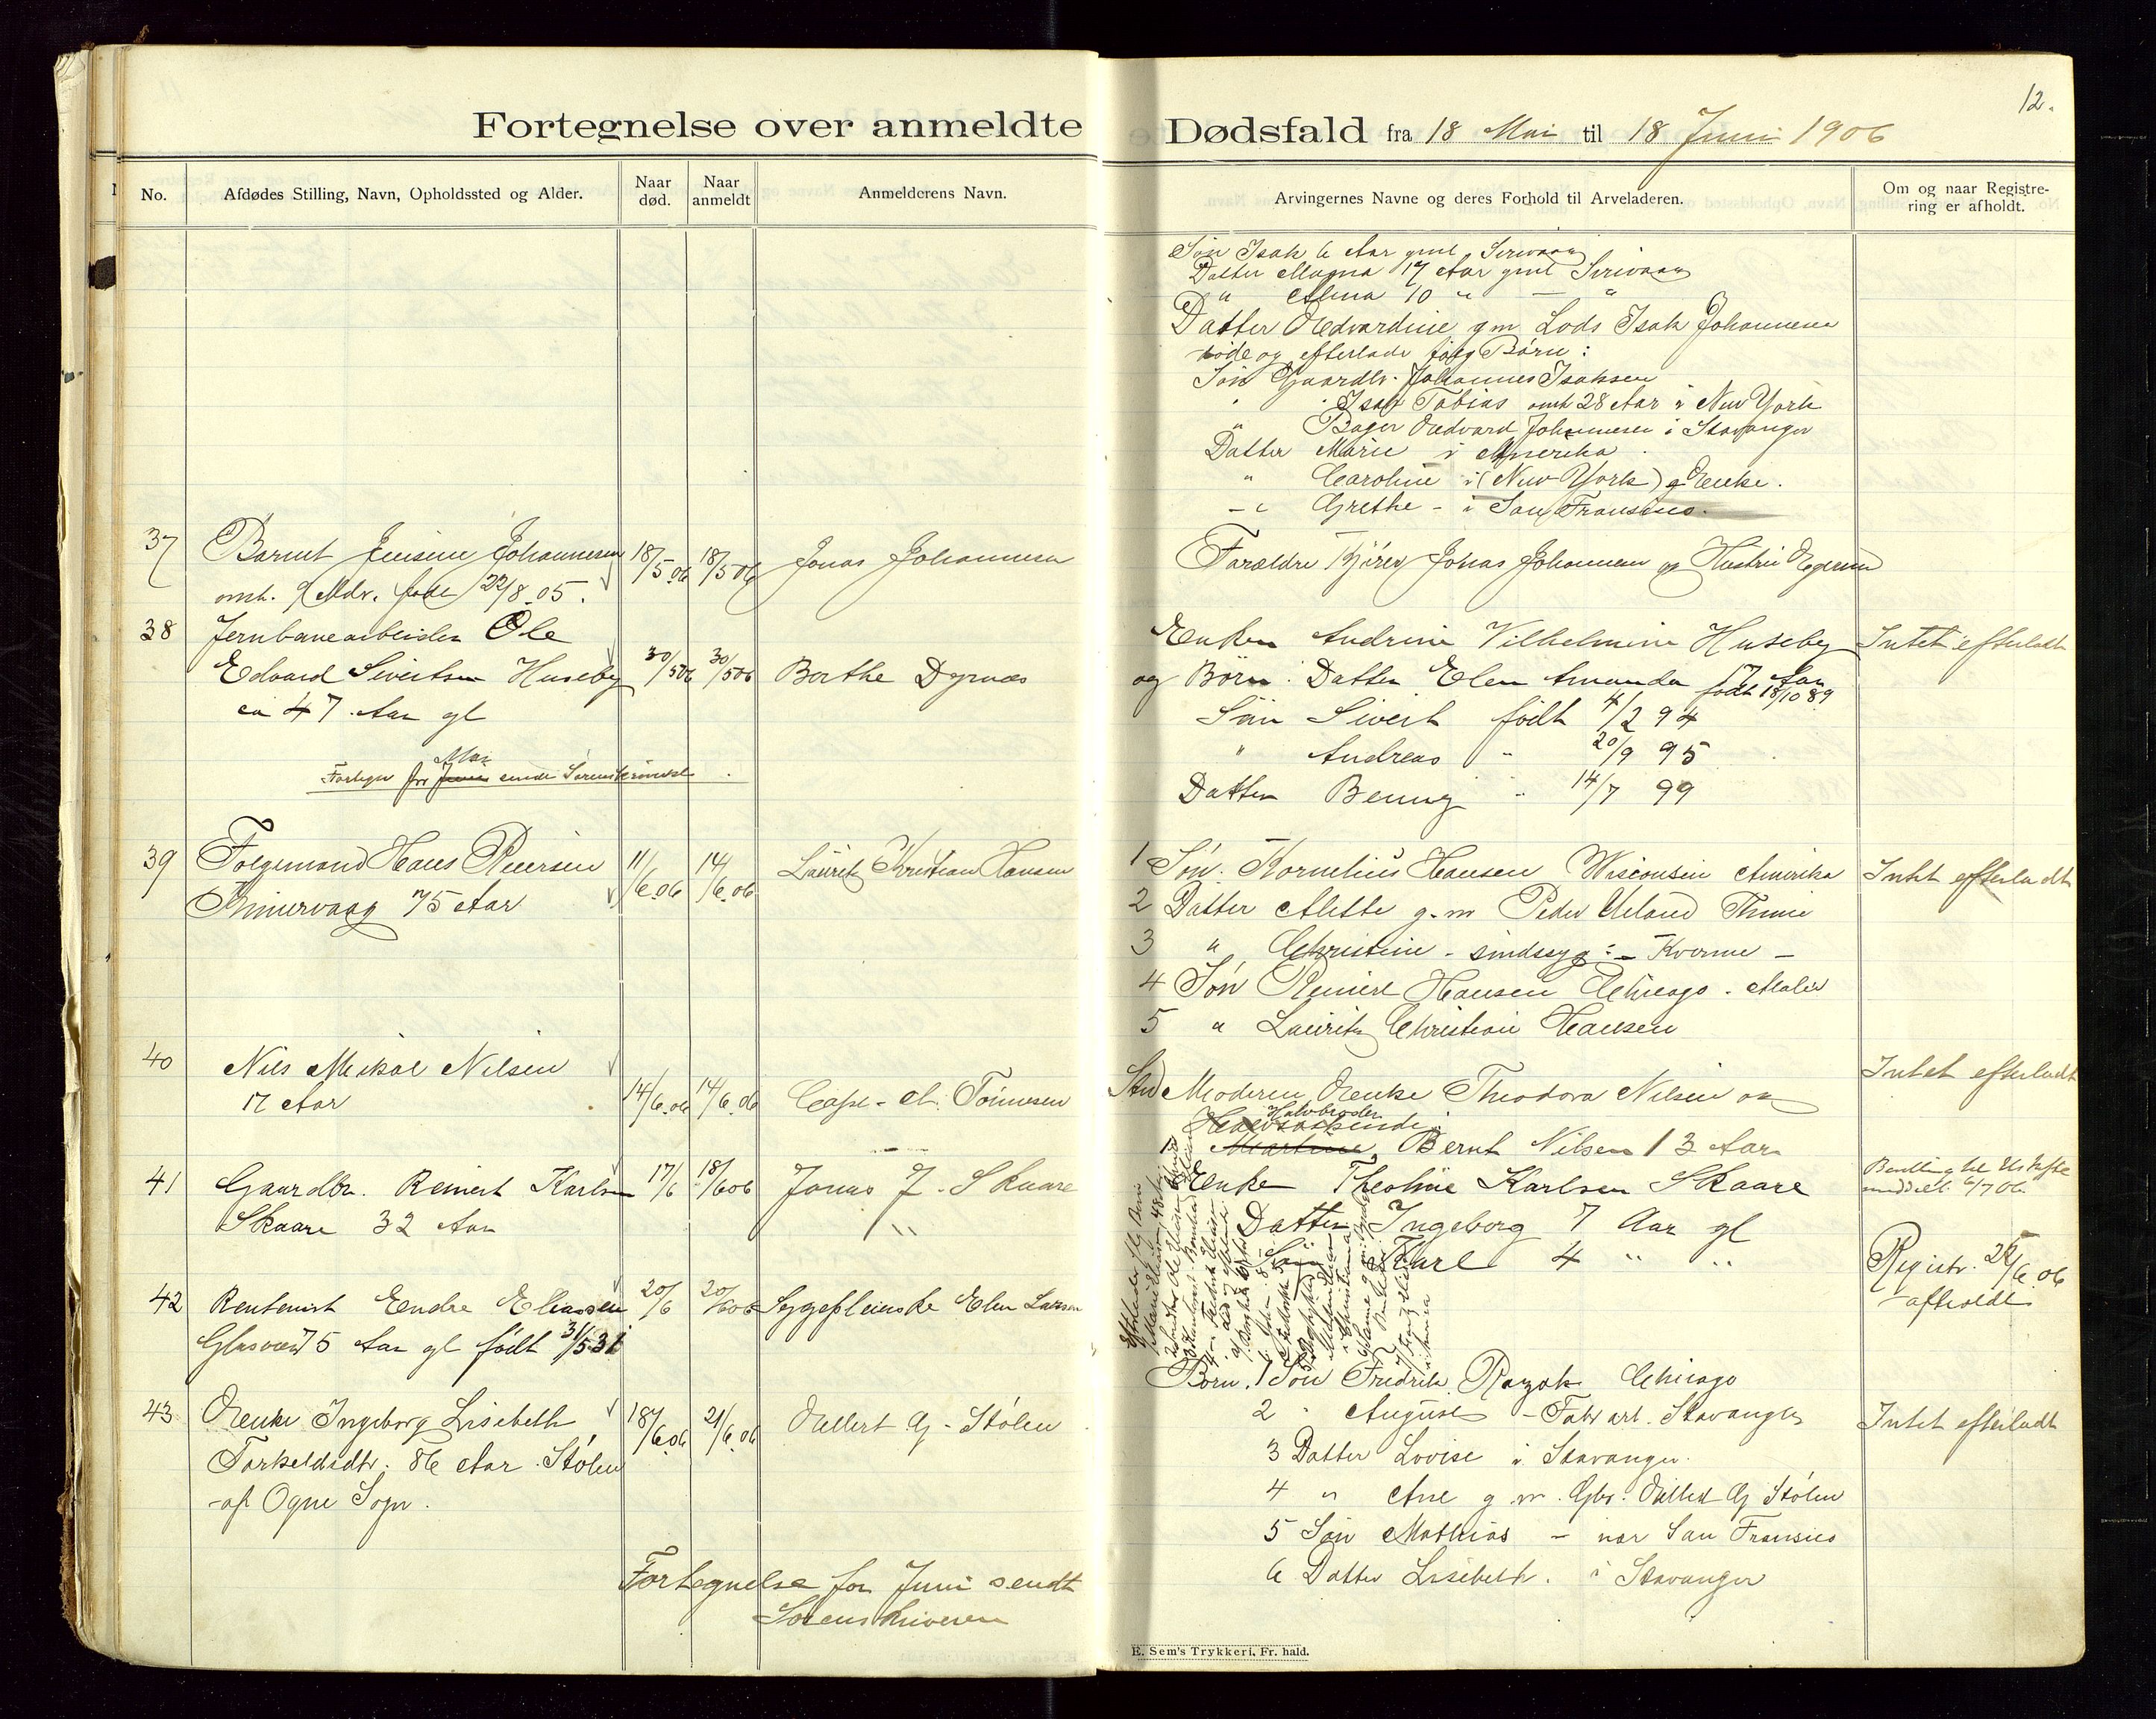 12.
Fortegnelse over anmeldte Dødsfald fra 18 Mai til 18 Juni 1906
No.
Afdødes Stilling, Navn, Opholdssted og Alder.
Naar død.
Naar anmeldt
Anmelderens Navn.
Arvingernes Navne og deres Forhold til Arveladeren.
Om og naar Registrering er afholdt.
Søn Isak 6 Aar gml Sirivaag
Datter Magna 17 Aar gml Sirivaag
" Alma 10 " — "
Datter Edvardine gm Lods Isak Johannesen
døde og efterlade følg Børn:
Søn Gaardbr. Johannes Isaksen
" Isak Tobias omk 28 Aar i New York
" Bager Edvard Johannesen i Stavanger
Datter Marie i Amerika
" Caroline i (New York) g Enke.
— " Grethe - i San Fransisco.
37 Barnet Jensine Johannesen 18/5 06 18/5 06 Jonas Johannesen
omk. 9 Mdr. født 22/8 05.
Forældre Kjører Jonas Johannesen og Hustru Egersund
38 Jernbanearbeider Ole
Edvard Sivertsen Huseby 30/5 06 30/5 06 Berthe Dyrnæs
ca 47 Aar gl
Enken Andrine Vilhelmine Huseby Intet efterladt
og Børn: Datter Elen Amanda 17 Aar
født 18/10 89
Søn Sivert født 4/2 94
" Andreas " 20/9 95
Datter Benny " 14/7 99
Mai
Fortegn for Juni sendt Sorenskriveren
39 Folgemand Hans Reiersen 11/6 06 14/6 06 Lauritz Kristian Hansen
75 Aar
1 Søn. Kornelius Hansen Wisconsin Amerika Intet efterladt
2 Datter Alette g.m Peder Ueland Thime
3 " Christine - sindssyg - Kvorme -
4 Søn Reinert Hansen Chicago. Maler
5 " Lauritz Christian Hansen
40 Nils Mikal Nilsen 14/6 06 14/6 06 Tønnesen
17 Aar
Moderen Enke Theodora Nilsen og Intet efterladt
Halvbroder
Halvsøskende:
1. Martine, Bernt Nilsen 13 Aar
41 Gaardbr. Reinert Karlsen 17/6 18/6 06 Jonas J. Skaare
Skaare 32 Aar
Enke Theoline Karlsen Skaare
Datter Ingeborg 7 Aar gl
Søn Karl 4 " "
42 Rentenist Endre Eliassen 20/6 20/6 06 Sygepleierske Elen Larsen
Glasværd 75 Aar gl født 31/5 31
Registr. 25/6 06
afholdt
43 Enke Ingeborg Lisebeth 18/6 06 21/6 06 Ellert G. Stølen
Torkeldsdtr. 86 Aar. Stølen
af Ogne Sogn.
Børn. 1 Søn Fredrik Chicago
2 " August - Fabr arb. Stavanger Intet efterladt
3 Datter Lovise i Stavanger.
4 " Ane g m. Gbr. Ellert G Stølen
5 Søn Mathias - nær San Fransisco
6 Datter Lisebeth. i Stavanger
Fortegnelse for Juni sendt
Sorenskriveren
E. Sem's Trykkeri, Fr. hald.